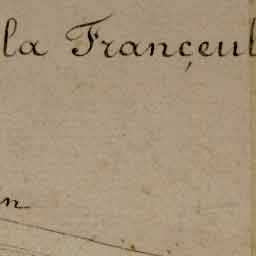 la Françeul
n